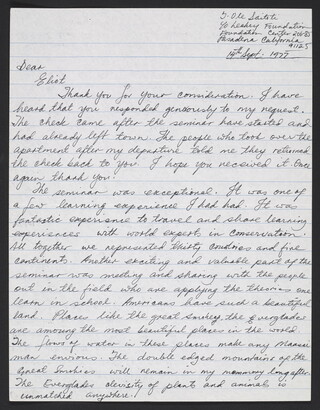 T. Ole Saitoti
c/o Leakey Foundation
Foundation Center 206-85
Pasadena California
91125
15th Sept. 1977
Dear
Eliot
Thank you for your consideration. I have
heard that you responded generously to my request.
The check came after the seminar have started and
had already left town. The people who took over the
apartment after my departure told me they returned
the check back to you. I hope you received it. Once
again thank you.
The seminar was exceptional. It was one of
a few learning experience I had had. It was
fantastic experience to travel and share learning
experiences with world expert in conservation.
All together we represented thirty countries and five
continents. Another exciting and valuable part of the
seminar was meeting and sharing with the people
out in the field who are applying the theories one
learn in school. Americans have such a beautiful
land. Places like the great smokey the Everglades
are among the most beautiful places in the world.
The flows of water in these places make any Maasai
man envious. The double edged mountains of the
Great Smokies will remain in my memmory long after.
The Everglades diversity of plants and animals is
unmatched anywhere!